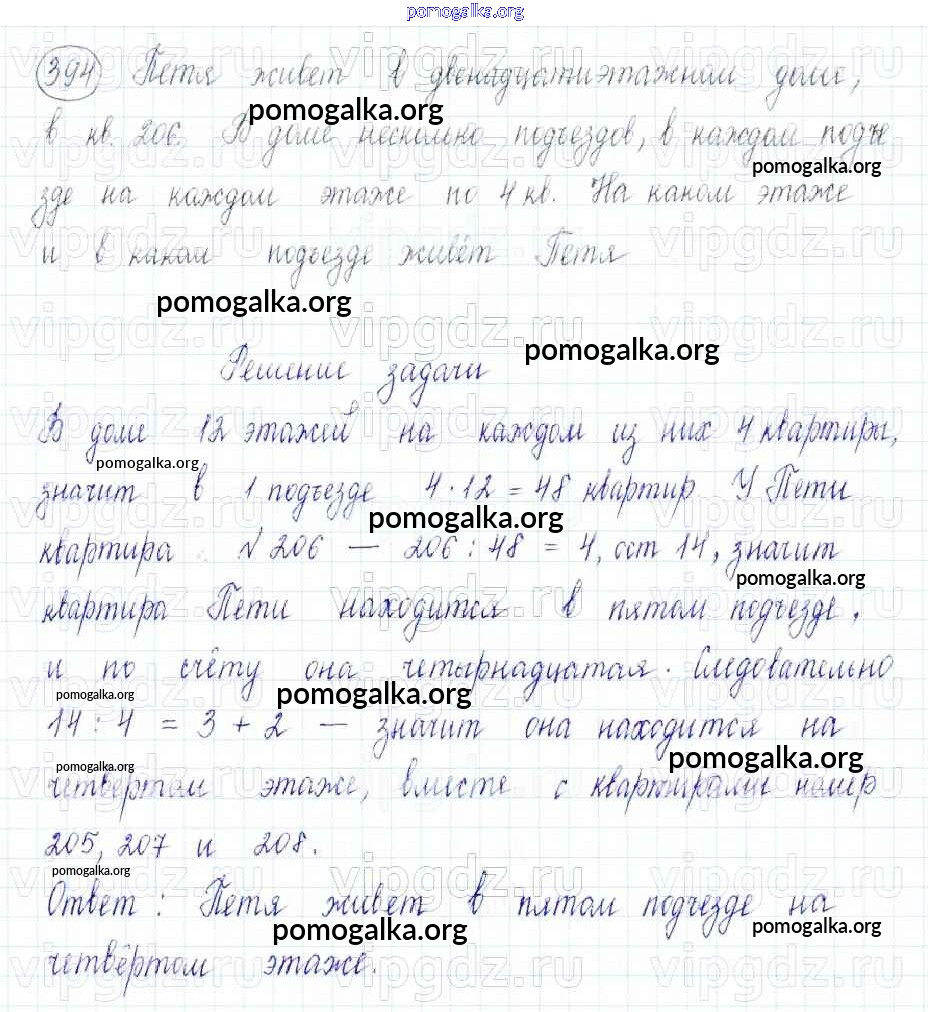 pomogalka.org
394 Петя живет в двенадцатиэтажном доме,
pomogalka.org
в кв. 206. В доме несколько подъездов, в каждом подъе
pomogalka.org
зде на каждом этаже по 4 кв. На каком этаже
и в каком подъезде живёт Петя
pomogalka.org
pomogalka.org
Решение задачи
В доме 12 этажей на каждом из них 4 квартиры,
pomogalka.org
значит в 1 подъезде 4 · 12 = 48 квартир У Пети
pomogalka.org
квартира №206 — 206 : 48 = 4, ост 14, значит
pomogalka.org
квартира Пети находится в пятом подъезде,
и по счёту она четырнадцатая. Следовательно
pomogalka.org pomogalka.org
14 : 4 = 3 + 2 — значит она находится на
pomogalka.org pomogalka.org
четвёртом этаже, вместе с квартирами номер
205, 207 и 208.
pomogalka.org
Ответ: Петя живет в пятом подъезде на
pomogalka.org pomogalka.org
четвёртом этаже.
vipgdz.ru